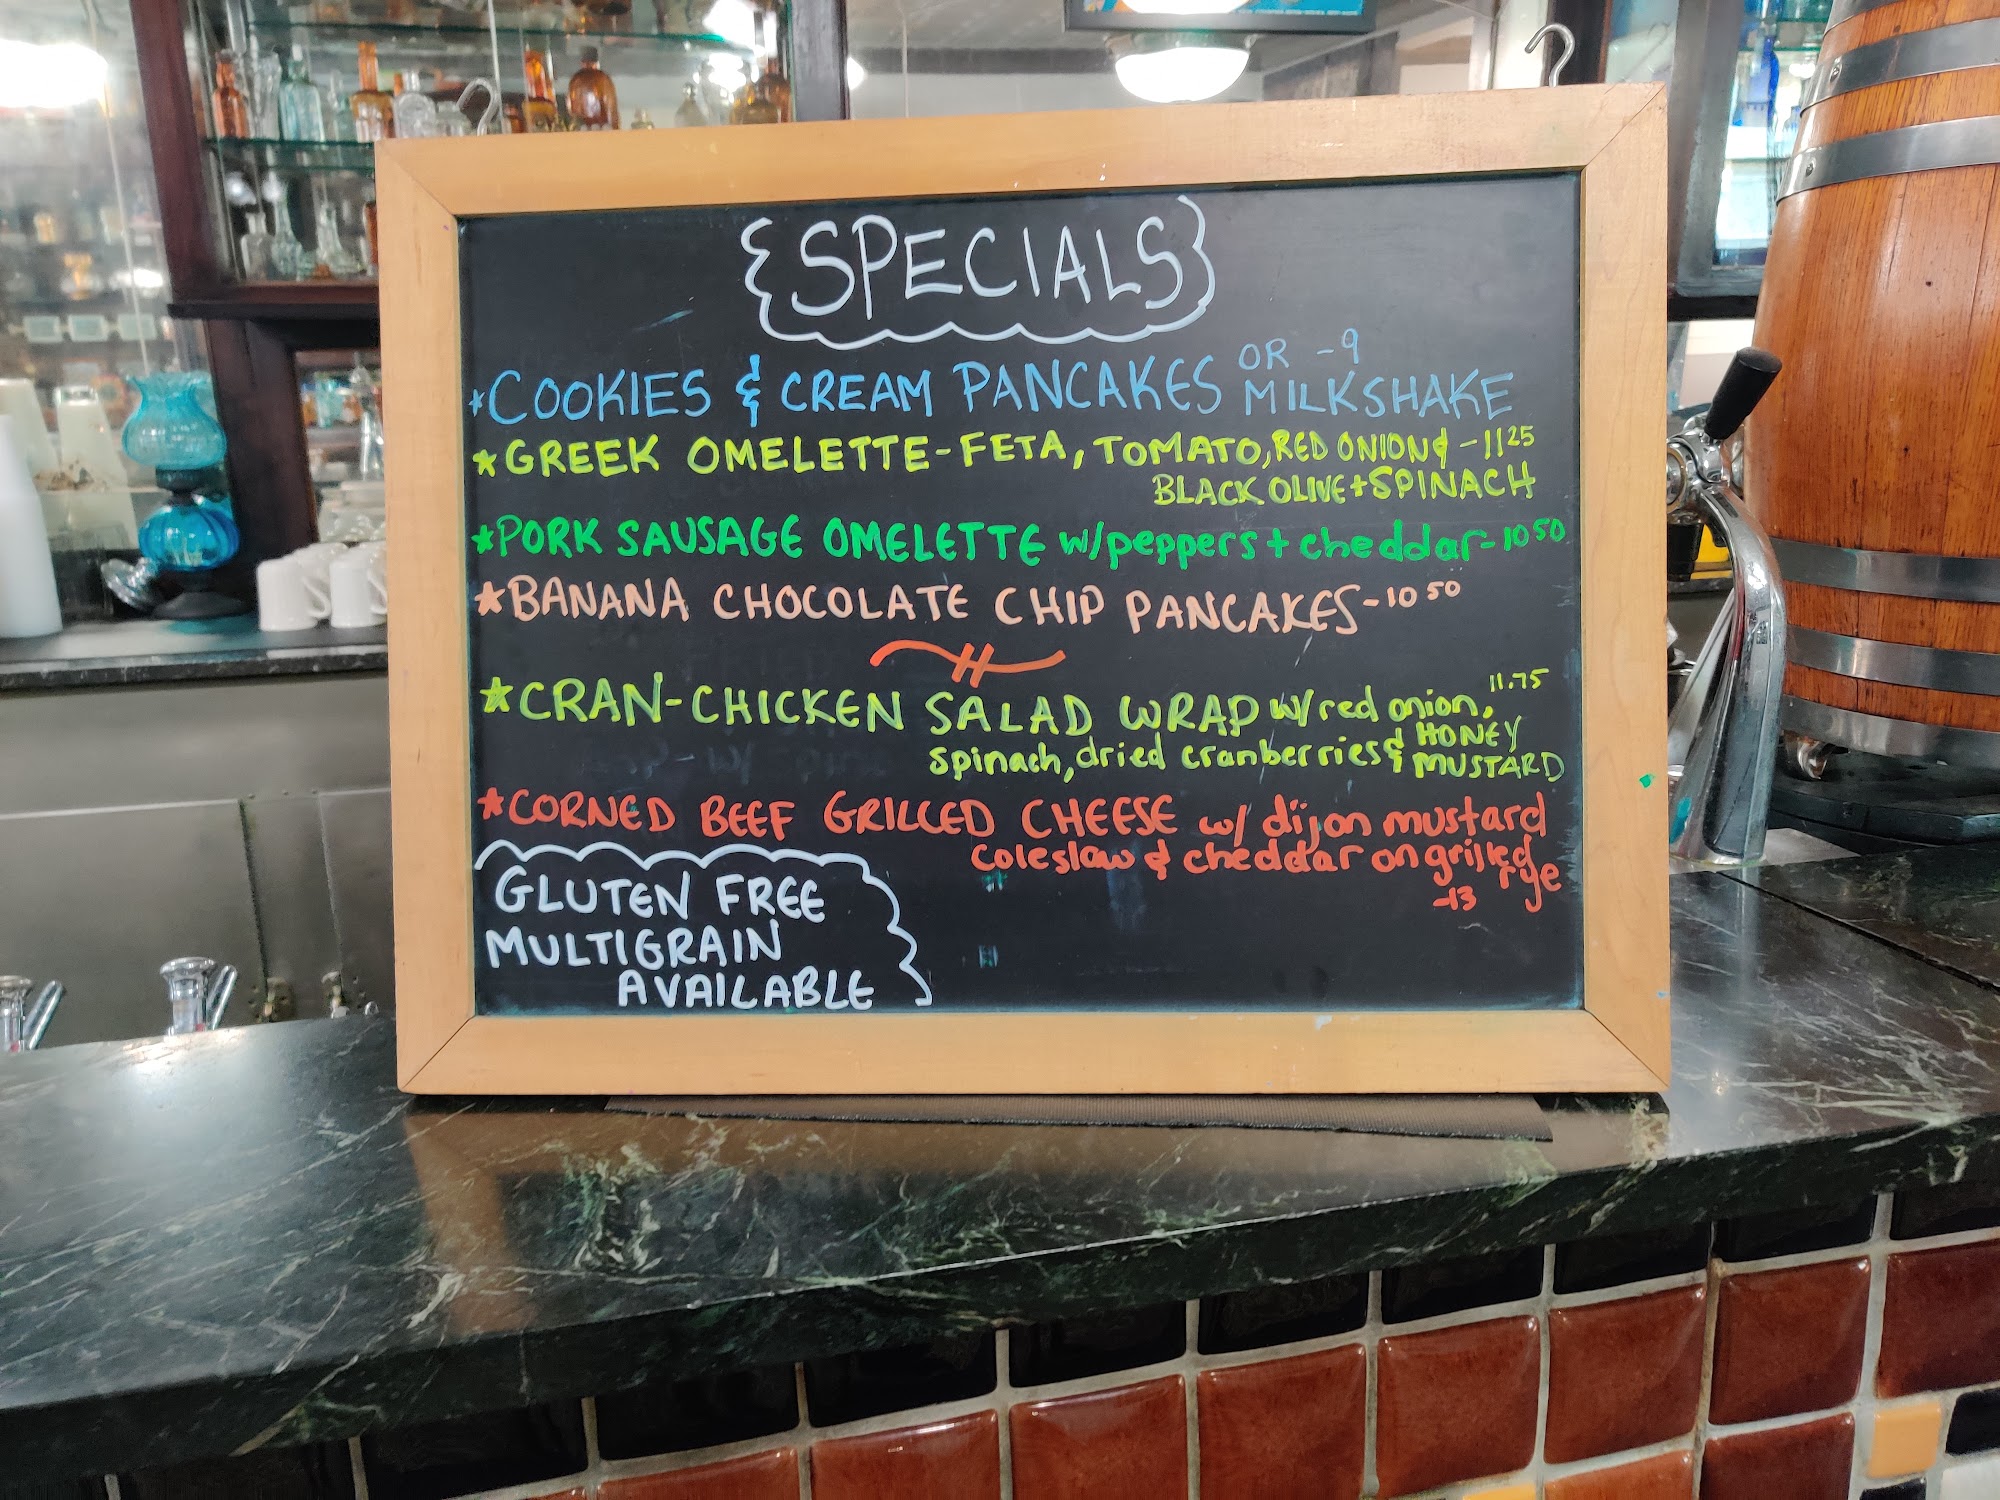 {SPECIALS}
*COOKIES & CREAM PANCAKES OR MILKSHAKE -9
*GREEK OMELETTE-FETA, TOMATO, RED ONION & -11 25
BLACK OLIVE + SPINACH
*PORK SAUSAGE OMELETTE w/peppers + cheddar-10 50
*BANANA CHOCOLATE CHIP PANCAKES-10 50
*CRAN-CHICKEN SALAD WRAP w/red onion, 11.75
spinach, dried cranberries & HONEY MUSTARD
*CORNED BEEF GRILLED CHEESE w/ dijon mustard
coleslaw & cheddar on grilled rye
-13
GLUTEN FREE
MULTIGRAIN
AVAILABLE